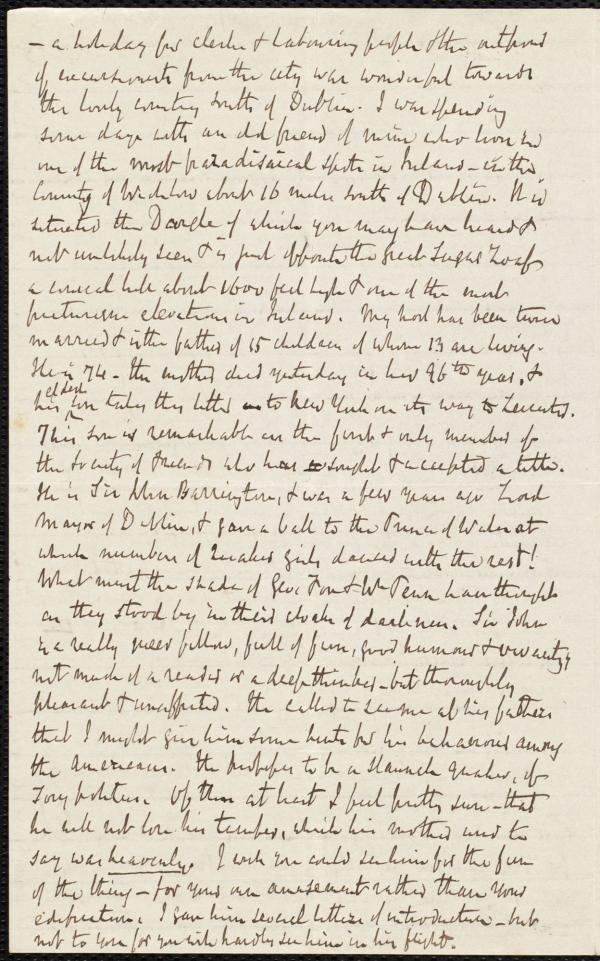 – a holiday for clerks & labouring people & the outpour
of excursionists from the city was wonderful towards
the lovely country South of Dublin. I was spending
some days with an old friend of mine who lives in
one of the most paradisaical spots in Ireland – in the
County of Wicklow about 16 miles South of Dublin. It is
situated the Dargle of which you may have heard &
not unlikely seen & is just opposite the great Sugar Loaf
a conical hill about 1600 feet high & one of the most
picturesque elevations in Ireland. My host has been twice
married & is the father of 15 children of whom 13 are living.
He is 74 – the mother died yesterday in her 96th year, &
his eldest son takes this letter to New York on its way to
This son is remarkable as the first & only member of
the Society of Friends who has sought & accepted a title.
He is Sir John Barrington, & was a few years ago Lord
Mayor of Dublin, & gave a ball to the Prince of Wales at
which numbers of Quaker girls danced with the rest!
What must the shade of Geo: Fox & Wm Penn have thought
as they stood by in their cloaks of darkness. Sir John
is a really good fellow, full of fun, good humour & vivacity,
not much of a reader or a deep thinker – but thoroughly
pleasant & unaffected. He called to see me at his father's
that I might give him some hints for his behaviour among
the Americans. He professes to be a staunch quaker, of
Tory politics. Of this at least I feel pretty sure – that
he will not lose his temper, which his mother used to
say was heavenly. I wish you could see him for the fun
of the thing – for your own amusement rather than your
edification. I gave him several letters of introduction – but
not to you for you will hardly see him in his flight.